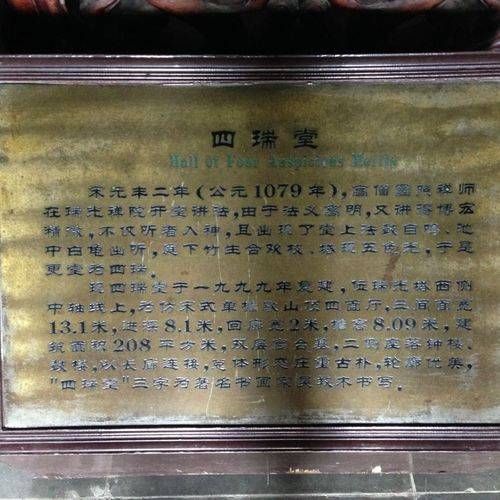 四瑞堂
Hall of Four Auspicious Merits
宋元丰二年(公元1079年),高僧圆照禅师
在瑞光禅院开堂讲法,由于法义高明,又讲得博宏
精微,不仅听者入神,且出现了堂上法鼓自鸣、池
中白龟出听,庭下竹生合欢枝、塔现五色光,于是
更堂为四瑞。
现四瑞堂于一九九九年复建,位瑞光塔西侧
中轴线上,为仿宋式单檐歇山式四面厅,三间面宽
13.1米,进深8.1米,回廊宽2米,檐高8.09米,建
筑面积208平方米,双层台基,二侧座落钟楼、
鼓楼,以长廊连接,总体形态庄重古朴,轮廓优美,
"四瑞堂"三字为著名书画家吴𢾾木书写。